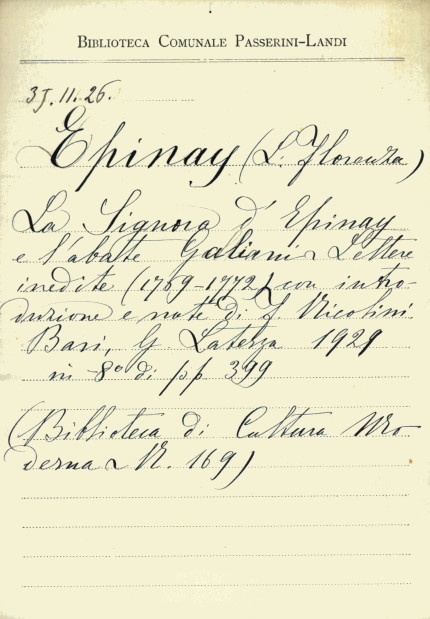 BIBLIOTECA COMUNALE PASSERINI-LANDI
35.11.26.
Epinay (L. Florenza)
La Signora d'Epinay
e l'abate Galiani - Lettere
inedite (1769-1772) con intro-
duzione e note di F. Nicolini
Bari, G. Laterza 1929
in-8° di pp. 399
(Biblioteca di Cultura Mo
derna - N. 169)